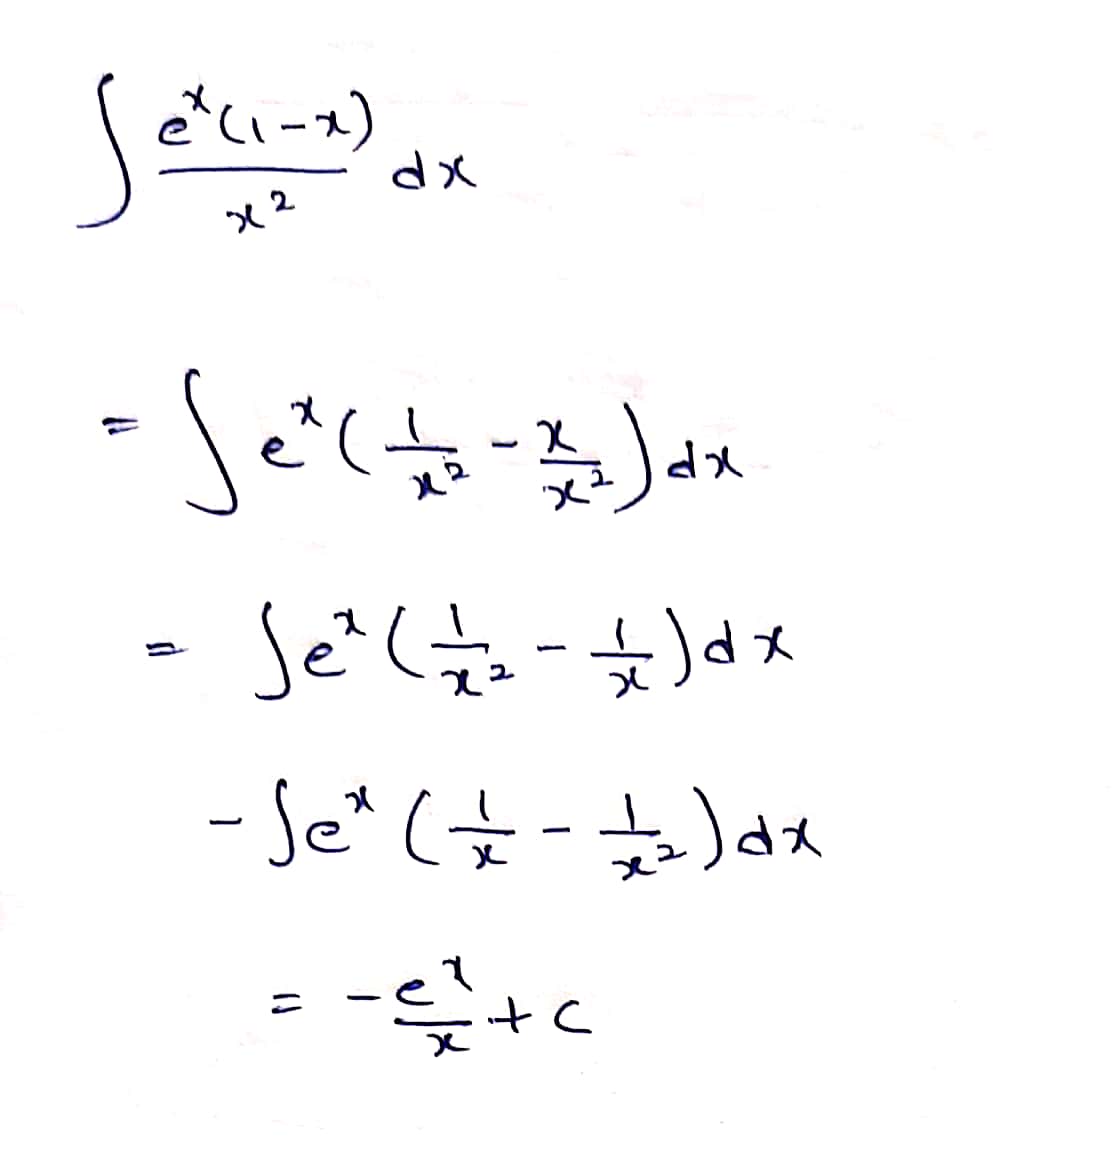 ∫ e^x(1-x)/x^2 dx
= ∫ e^x (1/x^2 - x/x^2) dx
= ∫ e^x (1/x^2 - 1/x) dx
- ∫ e^x (1/x - 1/x^2) dx
= - e^x/x + c